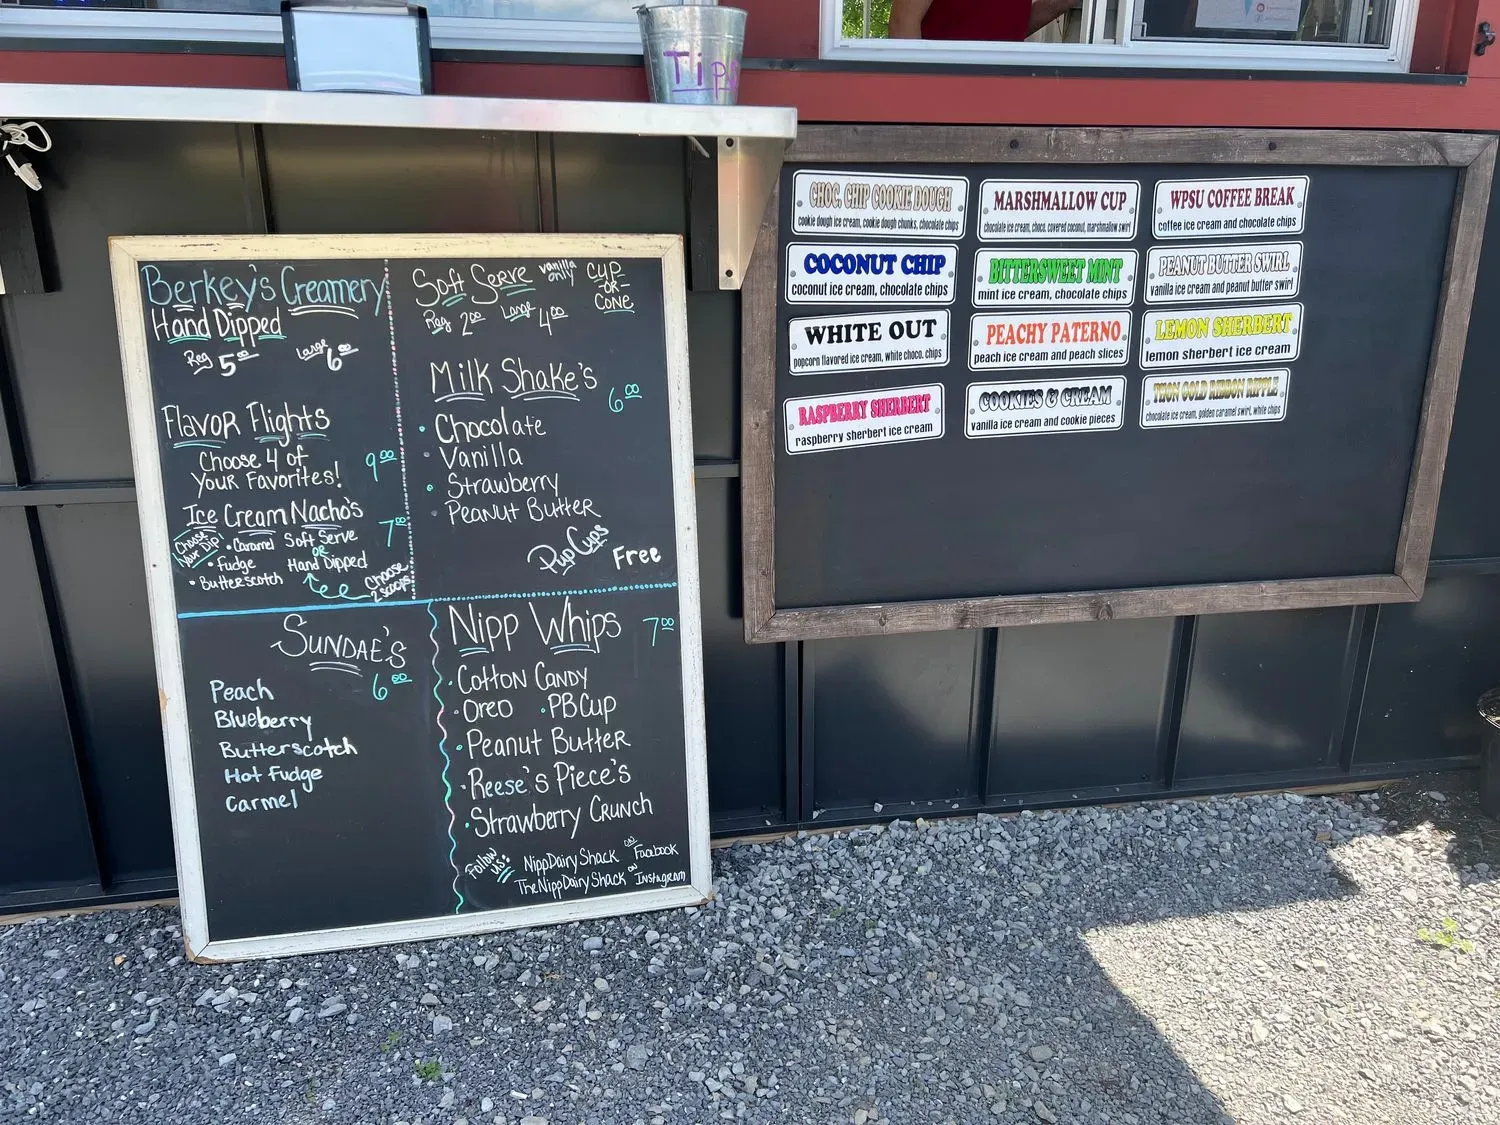 Tips
Berkey's Creamery
Hand Dipped
Reg 5.00 Large 6.00
Flavor Flights
Choose 4 of
Your Favorites!
9.00
Ice Cream Nacho's
7.00
Choose
Your Dip
• Caramel
• Fudge
• Butterscotch
Soft Serve
or
Hand Dipped
Choose
2 scoops
Soft Serve vanilla only
Cup
-or-
Cone
Reg 2.00 Large 4.00
Milk Shake's
6.00
• Chocolate
• Vanilla
• Strawberry
• Peanut Butter
Pup Cups Free
Sundae's
6.00
Peach
Blueberry
Butterscotch
Hot Fudge
Carmel
Nipp Whips 7.00
• Cotton Candy
• Oreo • PB Cup
• Peanut Butter
• Reese's Piece's
• Strawberry Crunch
Follow us:
NippDairyShack on Facebook
TheNippDairyShack on Instagram
CHOC. CHIP COOKIE DOUGH
cookie dough ice cream, cookie dough chunks, chocolate chips
MARSHMALLOW CUP
chocolate ice cream, choco. covered coconut, marshmallow swirl
WPSU COFFEE BREAK
coffee ice cream and chocolate chips
COCONUT CHIP
coconut ice cream, chocolate chips
BITTERSWEET MINT
mint ice cream, chocolate chips
PEANUT BUTTER SWIRL
vanilla ice cream and peanut butter swirl
WHITE OUT
popcorn flavored ice cream, white choco. chips
PEACHY PATERNO
peach ice cream and peach slices
LEMON SHERBERT
lemon sherbert ice cream
RASPBERRY SHERBERT
raspberry sherbert ice cream
COOKIES & CREAM
vanilla ice cream and cookie pieces
THON GOLD RIBBON RIPPLE
chocolate ice cream, golden caramel swirl, white chips